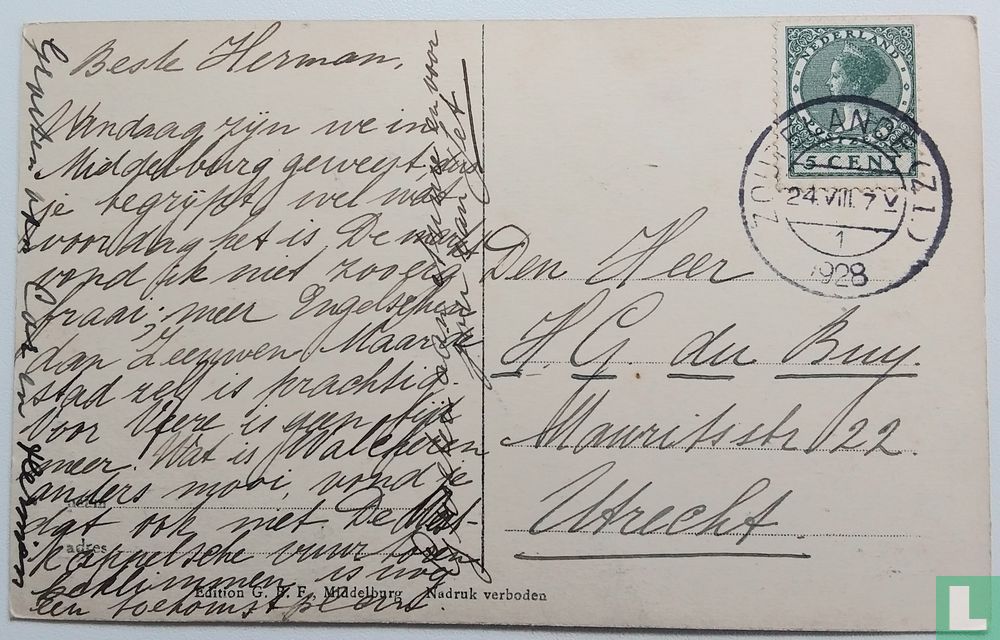 Beste Herman,
Vandaag zijn we in
Middelburg geweest, dus
je begrijpt wel wat
voor dag het is. De markt
vond ik niet zoo erg
fraai; meer Engelschen
dan Zeeuwen. Maar de
stad zelf is prachtig.
Voor Veere is geen tijd
meer. Wat is Walcheren
anders mooi, vond je
dat ook niet. De West-
kappelsche vuurtoren
beklimmen is nog
een toekomstplan.
Groeten van Cor en Herman
naam
adres
Edition G. B. F. Middelburg Nadruk verboden
NEDERLAND
POSTZEGEL
5 CENT
(ZL.)
24.VIII.7V
1
1928
Den Heer
H G. du Buy.
Mauritsstr 22
Utrecht.
L